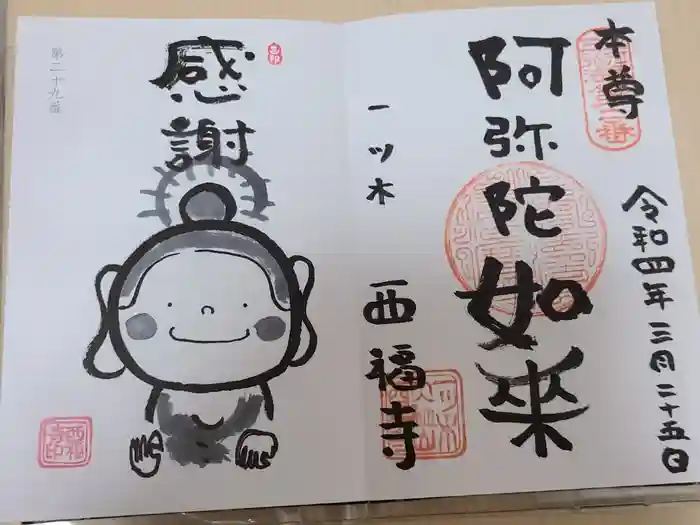 本尊
令和四年三月二十五日
阿弥陀如来
一ツ木
西福寺
感謝
第二十九番
西福寺印